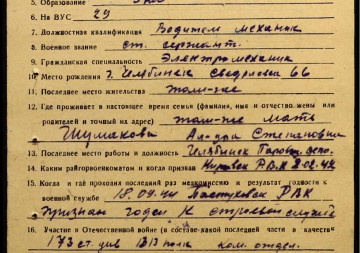 5. Образование
6. На ВУС 29
7. Должностная квалификация Водитель механик
8. Военное звание ст. сержант.
9. Гражданская специальность Электромеханик
10. Место рождения г. Челябинск Свердловск 66
11. Последнее место жительства там-же
12. Где проживает в настоящее время семья (фамилия, имя и отчество жены или
родителей и точный их адрес) там-же мать
Шумакова Степановна
13. Последнее место работы и должность Челябинск Паров. депо.
14. Каким райгорвоенкоматом и когда призван Кировск РВК 8.02.42
15. Когда и где проходил последний раз медкомиссию и результат годности к
военной службе 18.09.44 РВК
признан годен к строевой службе
16. Участие в Отечественной войне (в составе какой последней части в качестве
173 ст. див 1313 полк ком. отдел.